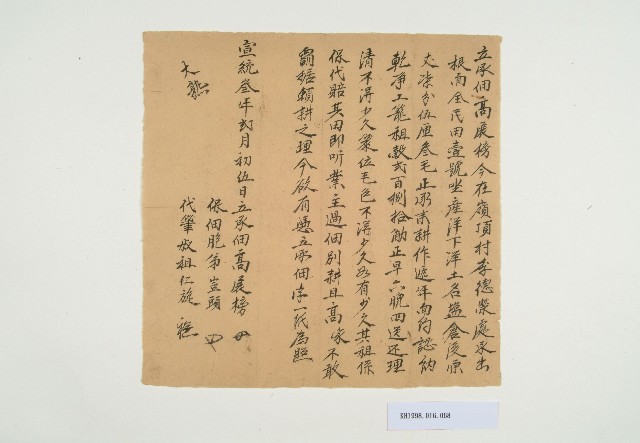 立承佃高展榜今在嶺頂村李德榮處承出
根面全民田壹號坐產洋下洋土名鹽倉后原
丈柒分伍厘叁毛正承來耕作遞年面約認納
乾淨上籠租穀弍百捌拾觔正早六晚四送还理
清不得少欠粟位毛色不得少欠如有少欠其租保
保代賠其田即听業主過佃別耕且高家不敢
霸 賴耕之理今欲有憑立承佃字一紙為照
宣統叁年弍月初伍日立承佃高展榜
保佃胞弟 頭
代筆叔祖仁旋
大熊
KH1998.016.068